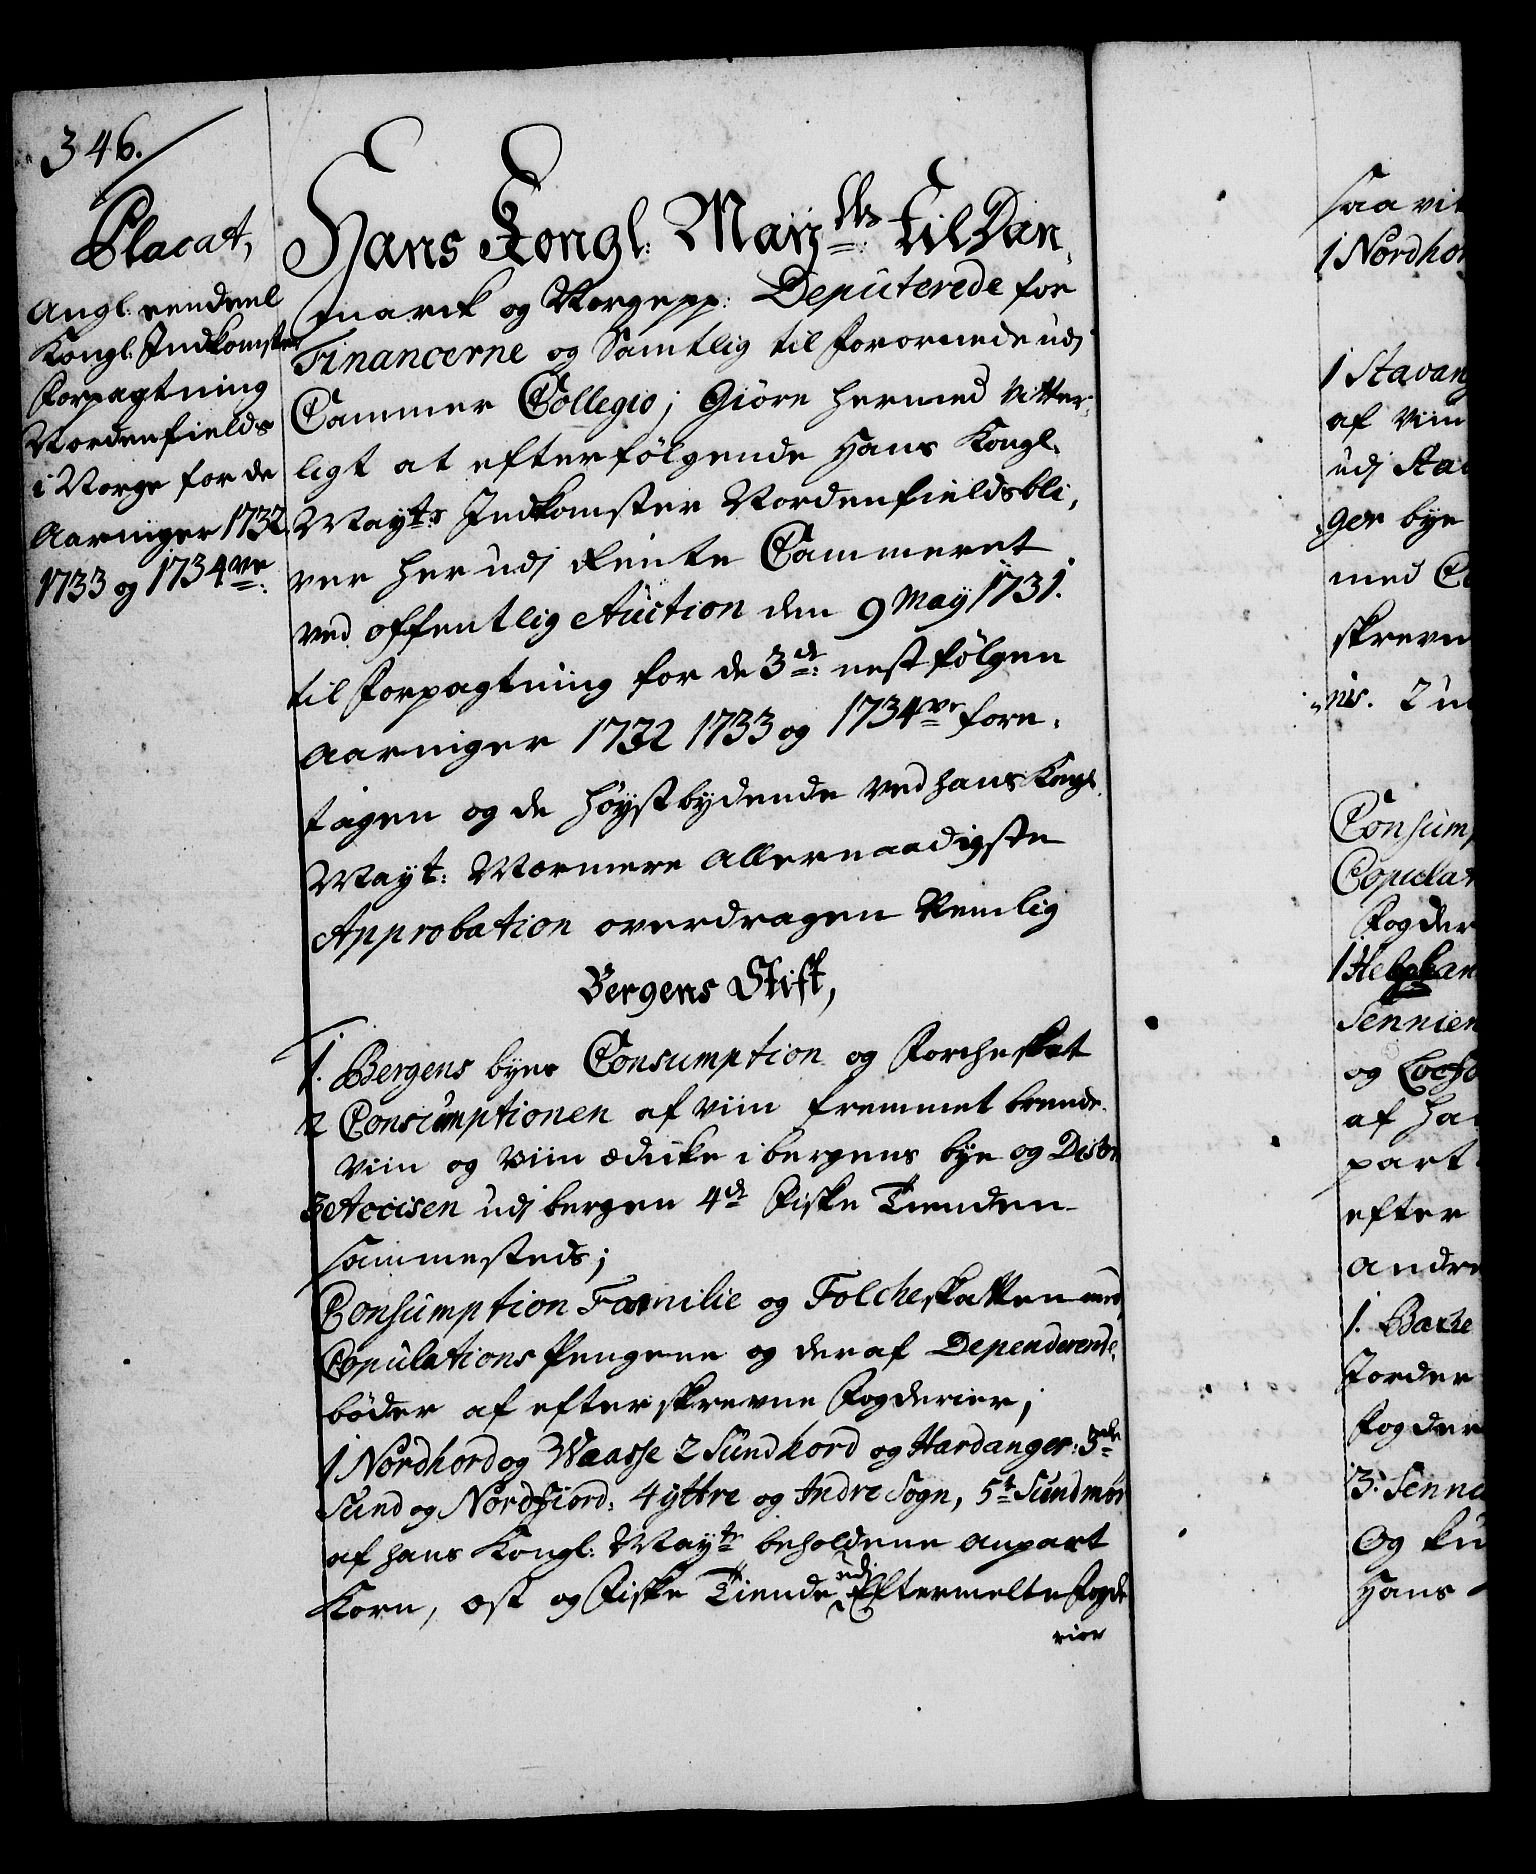 346.
Placat,
Angl: eendeel
Kongl. Indkomster
Forpagtning
Nordenfields
i Norge for de
Aaringer 1732.
1733 og 1734ve:
Hans Kongl: Mayts til Dan,
marck og Norge pp: Deputerede for
Financerne og Samtlig til forornede udj
Cammer Collegio; Giøre hermed Vitter,
ligt at efterfølgende Hans Kongl.
Mayts Indkomster Nordenfields bli,
ver her udj Rente Cammeret
ved offentlig Auction den 9 May 1731.
til Forpagtning for de 3de: nestfølgen
Aaringer 1732 1733 og 1734ve fore,
tagen og de høystbydende ved hans Kongl.
Mayt: Nermere Allernaadigste
Approbation overdragen Nemlig
Bergens Stift,
1. Bergens byes Consumption og Forche skat
2 Consumptionen af viin fremmet brende,
viin og viin ædicke i bergens bye og Distr
3 Accisen udj bergen 4de Fiske Tienden
sammesteds;
Consumption Familie og Folcheskatten med
Copulations Pengene og deraf Dependerende
bøder af efterskrevne Fogderier;
1 Nordhord og Waasse 2 Sundhord og Hardanger: 3de
Sund og Nordfiord: 4 yttre og Indre Sogn, 5t Sundmør
af hans Kongl: Mayts beholdene anpart
Korn, ost og Fiske Tiende udj Eftermelte Fogde
rier
saa vit
1 Nordhor
1 Stavan
af Viin
udj Sta
ger bye
med C
skrevn
2 u
Consum
Copulat
Fogder
1 Helgelan
Sennien
og Lofo
af ha
part
efter
andre
1.
Fogder
3. Senni
Og
Hans